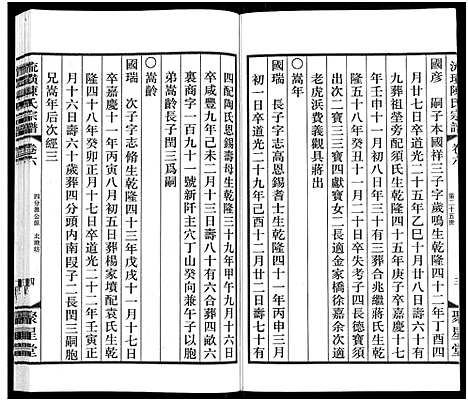 流璜陳氏宗譜 卷六
第二十五世
三
聚星堂
國彥 嗣子本國祥三子字歲鳴生乾隆四十二年丁酉四
月廿七日卒道光二十五年乙巳十月廿八日壽六十
九葬祖塋旁配須氏生乾隆四十五年庚子卒嘉慶十七
年壬申十一月初八日年三十三合葬兆繼蔣氏生乾
隆五十八年癸丑十一月二十日卒失考子四長德功
出次二寶三三寶四獻寶女二長適金家港徐嘉次適
老虎浜費義觀具蔣出
○嵩齡
國瑞 長子字志高恩錫耆士生乾隆四十一年丙申三月
初一日卒道光二十九年己酉十二月廿二日壽七十有
四配陶氏恩錫壽母生乾隆三十九年甲午九月十六日
卒咸豐九年己未二月十三日壽八十有六合葬四分
裏商字一百九十一號新阡主穴丁山癸向兼午子以同胞
弟嵩年長子閏三爲嗣
○嵩齡
國瑞 次子字志脩生乾隆四十三年戊戌十一月十七日
卒嘉慶十一年丙寅八月初五日三葬楊家墳配袁氏生乾
隆四十八年癸卯正月十七日卒道光二十二年壬寅正
月十六日壽六十葬四分墳內南段子二長閏三嗣胞
兄嵩年后次經三
流璜陳氏宗譜 卷六
四分惠公派 北廒坊
四
聚星堂